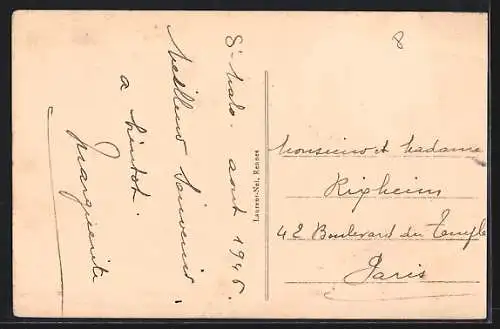 St Malo. août 1945.
Meilleur Souvenir.
a bientot.
Marguerite
Laurent-Nel, Rennes
8
Monsieur et Madame
Rixheim
42 Boulevard du Temple
Paris